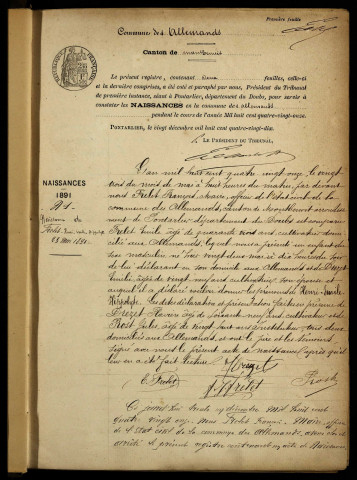 Première feuille
Commune des Allemands
Canton de Montbenoit
Le présent registre, contenant deux feuilles, celle-ci
et la dernière comprises, a été coté et paraphé par nous, Président du Tribunal
de première instance, séant à Pontarlier, département du Doubs, pour servir à
constater les NAISSANCES en la commune des Allemands
pendant le cours de l'année Mil huit cent quatre-vingt-onze.
PONTARLIER, le vingt décembre mil huit cent quatre-vingt-dix.
LE PRÉSIDENT DU TRIBUNAL,
NAISSANCES
1891
N° 1
Naissance de
L'an mil huit cent quatre vingt onze, le vingt
trois du mois de mai à huit heures du matin, par devant
nous Frelet François maire, officier de l'état civil de la
commune des Allemands, canton de Montbenoit arrondisse
ment de Pontarlier département du Doubs est comparu
Frelet Emile âgé de quarante trois ans, cultivateur domi
cilié aux Allemands, lequel nous a présenté un enfant du
sexe masculin né
lui déclarant en son domicile aux Allemands et de
âgée de vingt neuf ans, cultivatrice son épouse et
auquel il a déclaré vouloir donner les prénoms de Henri Emile
Les dites déclaration et présentation faites en présence de
âgé de soixante neuf ans cultivateur et de
Jules âgé de vingt huit ans instituteur tous deux
domiciliés aux Allemands, et ont le père et les témoins
signé avec nous le présent acte de naissance après qu'il
leur en a été fait lecture
E. Frelet
F. Frelet
Ce jourd'hui trente et un décembre mil huit cent
quatre vingt onze, nous Frelet François Maire, officier
de l'état civil de la commune des Allemands, avons clos et
arrêté le présent registre contenant un acte de Naissance